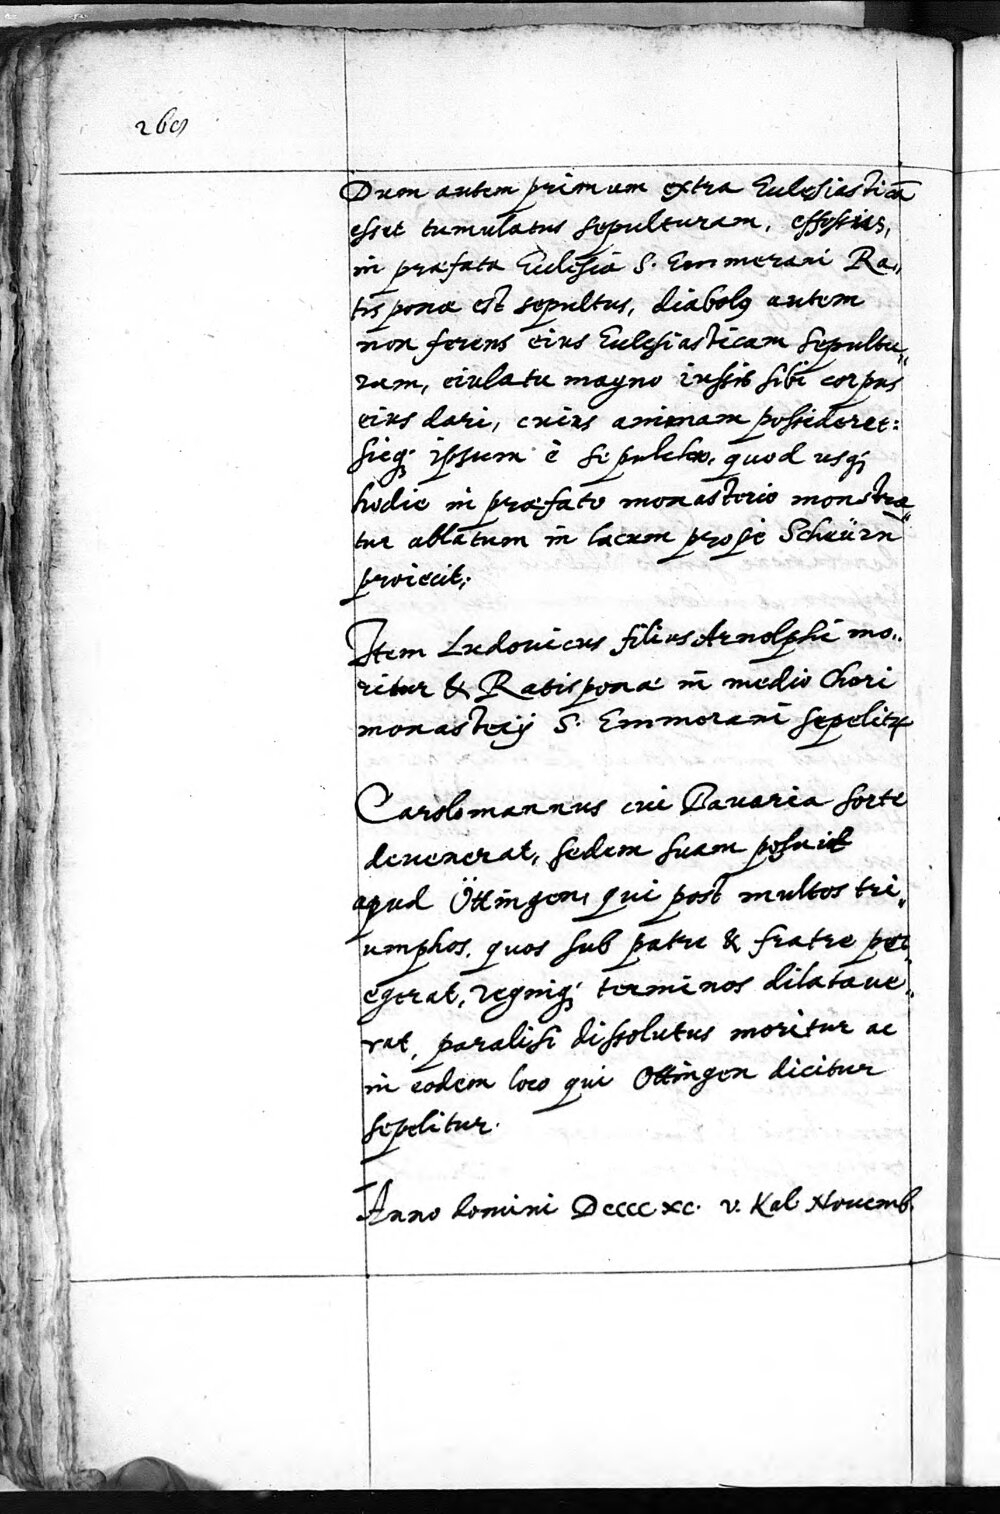 269
Dum autem primum extra Ecclesiasticā
esset tumulatus sepulturam, effossus,
in præfata Ecclesia S. Emmerani Ra„
tisponæ est sepultus, diabolꝯ autem
non ferens eius Ecclesiasticam sepultu„
ram, eiulatu magno iussit sibi corpus
eius dari, cuius animam possideret:
sicqꝫ ipsum è sepulchro, quod usqꝫ
hodie in præfato monasterio monstra„
tur ablatum in lacum prope Scheürn
proiecit.
Item Ludouicus filius Arnolphi mo„
ritur & Ratisponæ in medio Chori
monasterij S. Emmorani sepelitr
Carolomannus cui Bauaria sorte
deuenerat, sedem suam posuit
apud Öttingen, qui post multos tri„
umphos, quos sub patre & fratre per„
egerat, regniqꝫ terminos dilataue„
rat, paralisi dissolutus moritur ac
in eodem loco qui Ottingen dicitur
sepelitur.
Anno domini Dcccc xc. v. Kal. Nouemb.